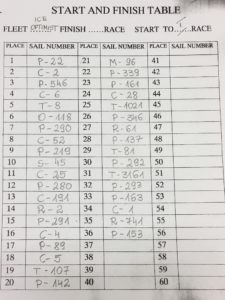 START AND FINISH TABLE
ICE
FLEET OPTIMIST FINISH ......RACE START TO...1...RACE
PLACE SAIL NUMBER PLACE SAIL NUMBER PLACE SAIL NUMBER
1 P-22 21 M-96 41
2 C-2 22 P-339 42
3 P-546 23 P-161 43
4 C-6 24 C-28 44
5 T-8 25 T-1021 45
6 O-118 26 P-346 46
7 P-290 27 R-61 47
8 C-52 28 P-137 48
9 P-219 29 T-81 49
10 S-45 30 P-292 50
11 C-25 31 T-3161 51
12 P-280 32 P-297 52
13 C-191 33 P-163 53
14 R-2 34 C-1 54
15 P-291 35 R-741 55
16 C-4 36 P-153 56
17 P-89 37 57
18 C-5 38 58
19 T-107 39 59
20 P-142 40 60